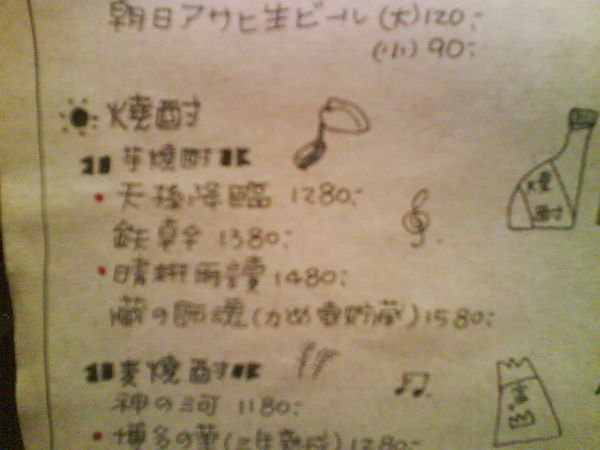 朝日アサヒ生ビール (大)120:-
(小) 90:-
燒酎
芋燒酎
天孫降臨 1280:-
鉄幹 1380:-
晴耕雨讀 1480:-
藏の師魂(かめ壺貯蔵) 1580:-
燒酎
麦燒酎
神の河 1180:-
博多の華(三年熟成) 1280:-